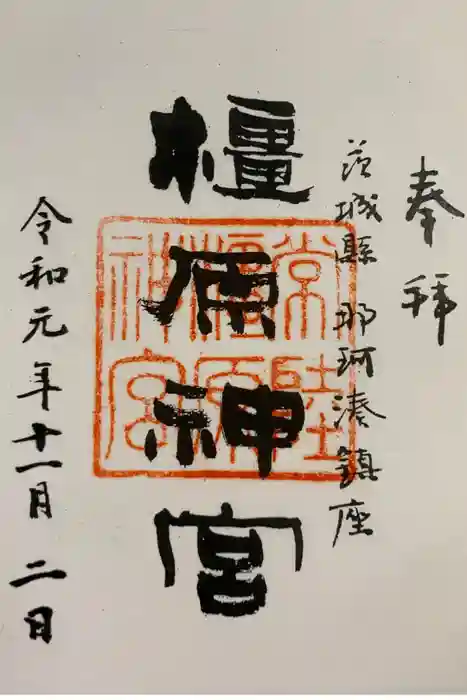 奉拝
茨城縣 那珂湊鎮座
橿原神宮
常陸
橿原
神宮
令和元年十一月二日